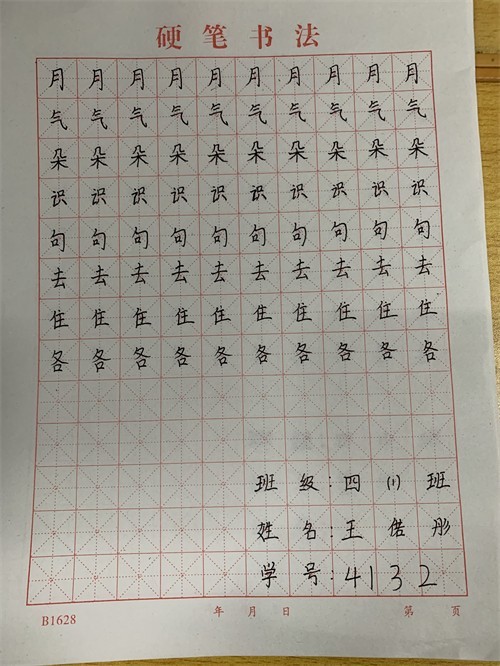 硬笔书法
月月月月月月月月月月
气气气气气气气气气气
朵朵朵朵朵朵朵朵朵朵
识识识识识识识识识识
句句句句句句句句句句
去去去去去去去去去去
住住住住住住住住住住
各各各各各各各各各各
班级:四(1)班
姓名:王偌彤
学号:4132
B1628 年 月 日 第 页